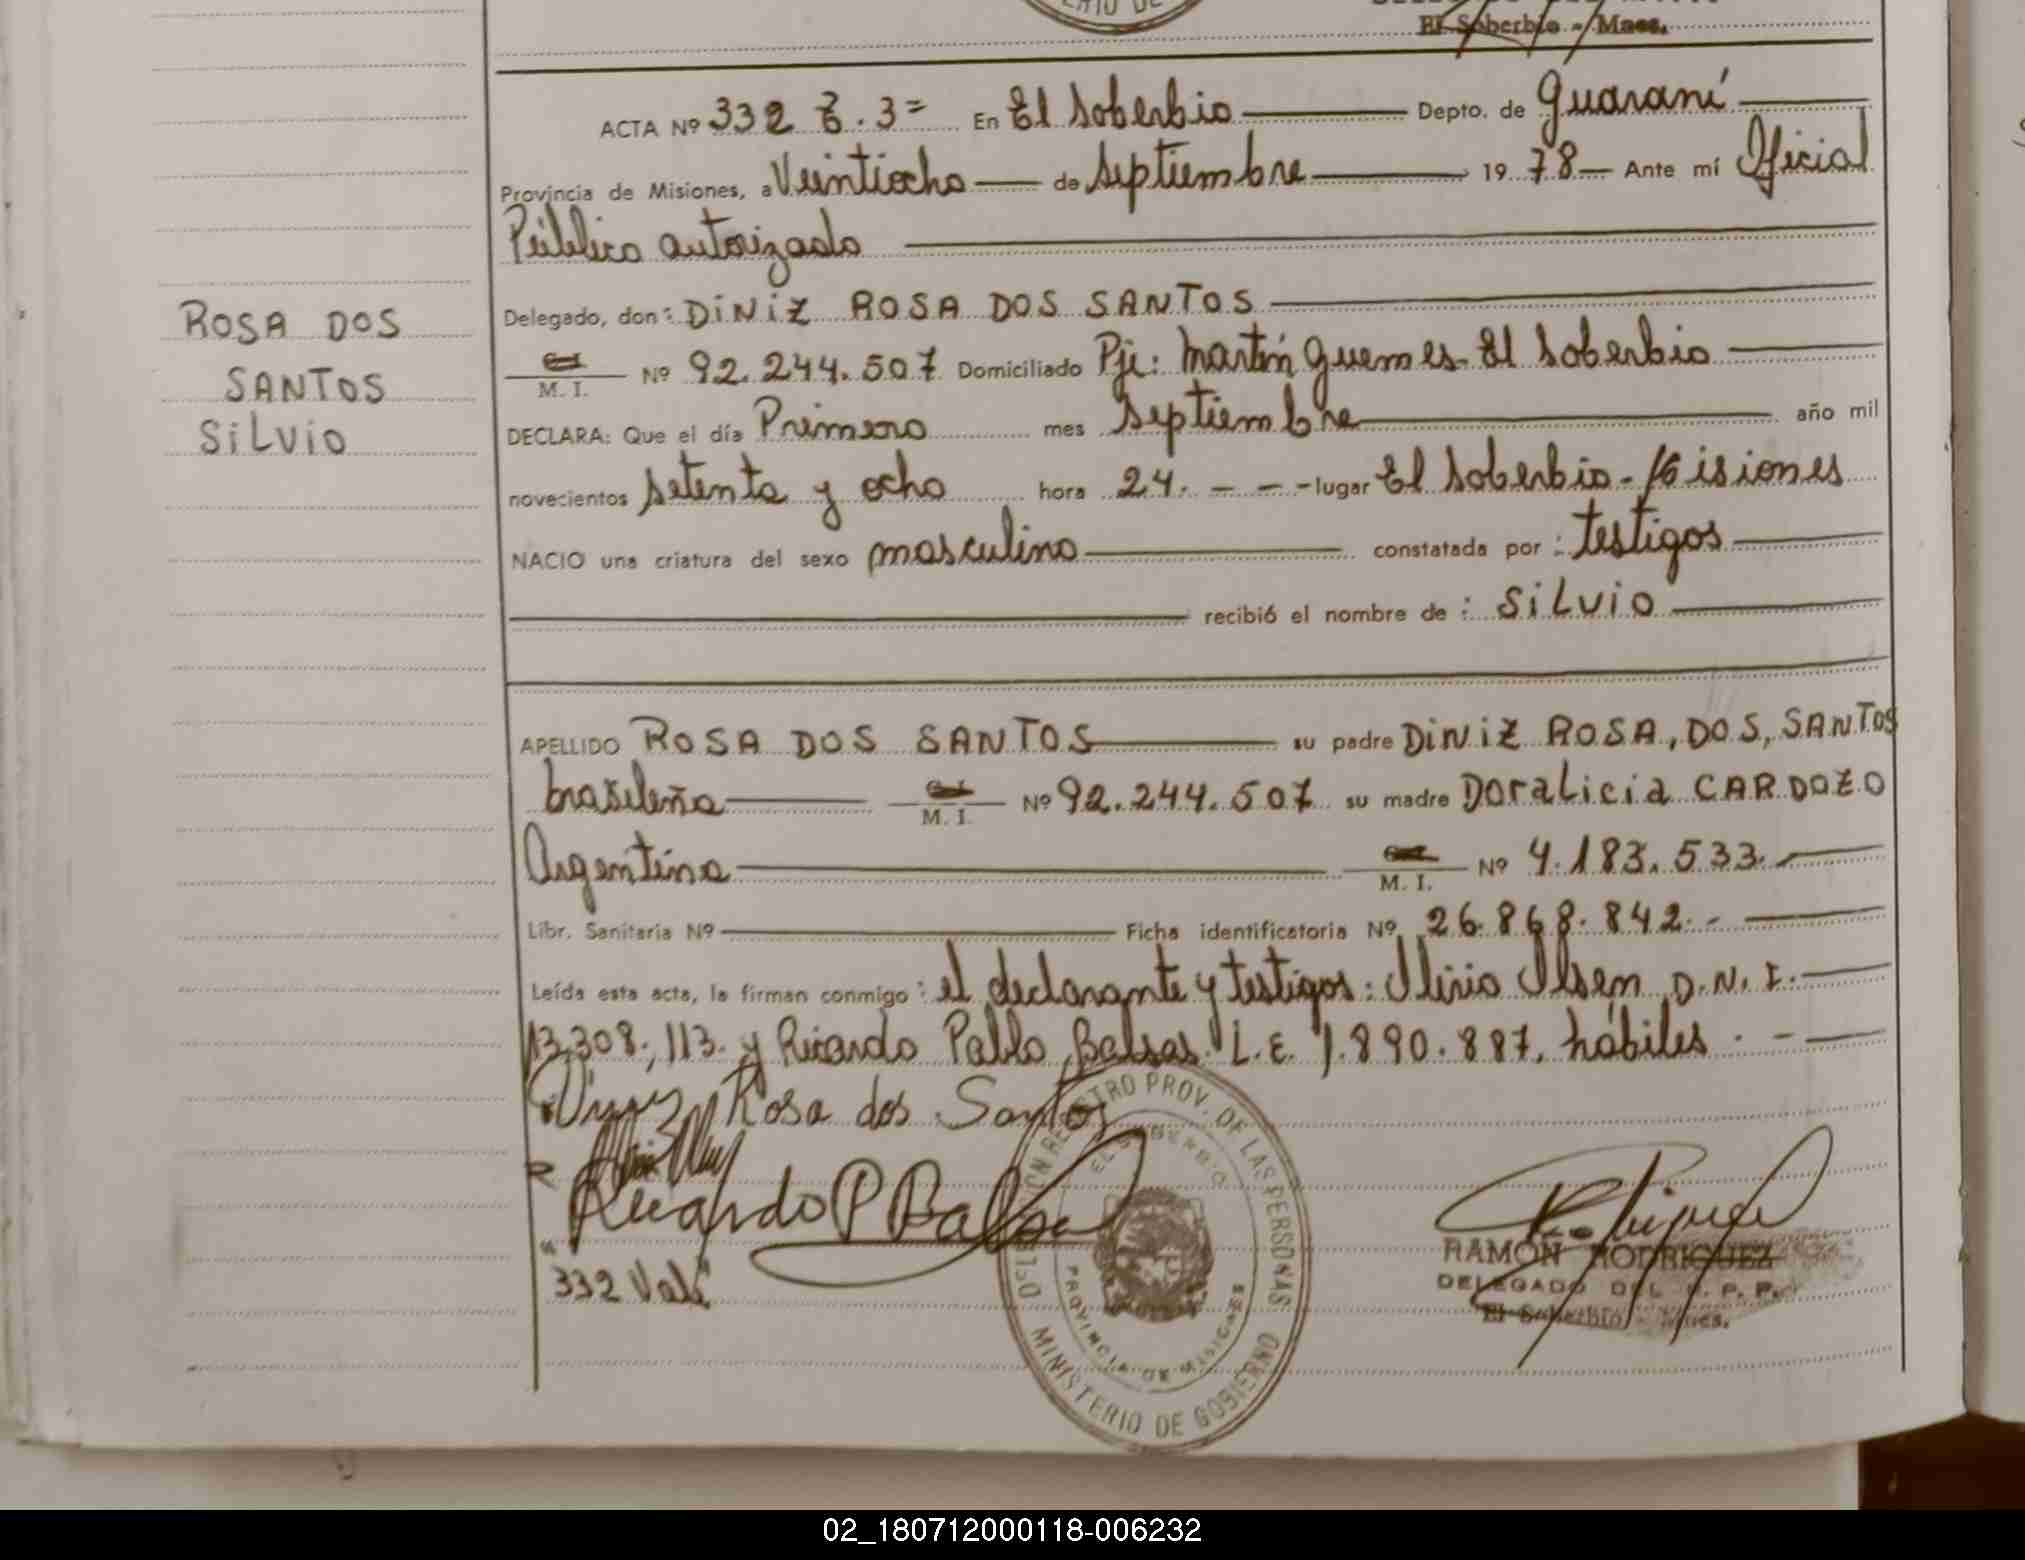 El Soberbio - Mnes.
ACTA Nº 332 T. 3= En El Soberbio Depto. de Guaraní
Provincia de Misiones, a Veintiocho de septiembre 19 78 Ante mí Oficial
Público autorizado
Delegado, don: DiNiZ ROSA DOS SANTOS
M. I. Nº 92.244.507 Domiciliado Pje: Martín Guemes - El Soberbio
DECLARA: Que el día Primero mes septiembre año mil
novecientos setenta y ocho hora 24. - - - lugar El Soberbio - Misiones
NACIO una criatura del sexo masculino constatada por : testigos
recibió el nombre de : SiLVio
ROSA DOS
SANTOS
SiLVio
APELLIDO ROSA DOS SANTOS su padre DiNiZ ROSA, DOS, SANTOS
brasileña M. I. Nº 92.244.507 su madre DoraLicia CARDOZO
Argentina M. I. Nº 4.183.533.
Libr. Sanitaria Nº Ficha identificatoria Nº 26.868.842. -
Leída esta acta, la firman conmigo : el declarante y testigos: Ilirio Ilsen D.N.I.
13.308.113. y Ricardo Pablo Balsas L.E. 1.890.887. hábiles . -
Rosa dos Santos
Ricardo P Balsa
332 Vale
REGISTRO PROV. DE LAS PERSONAS
EL SOBERBIO
PROVINCIA DE MISIONES
MINISTERIO DE GOBIERNO
RAMÓN RODRIGUEZ
DELEGADO DEL R. P. P.
El Soberbio - Mnes.
02_180712000118-006232